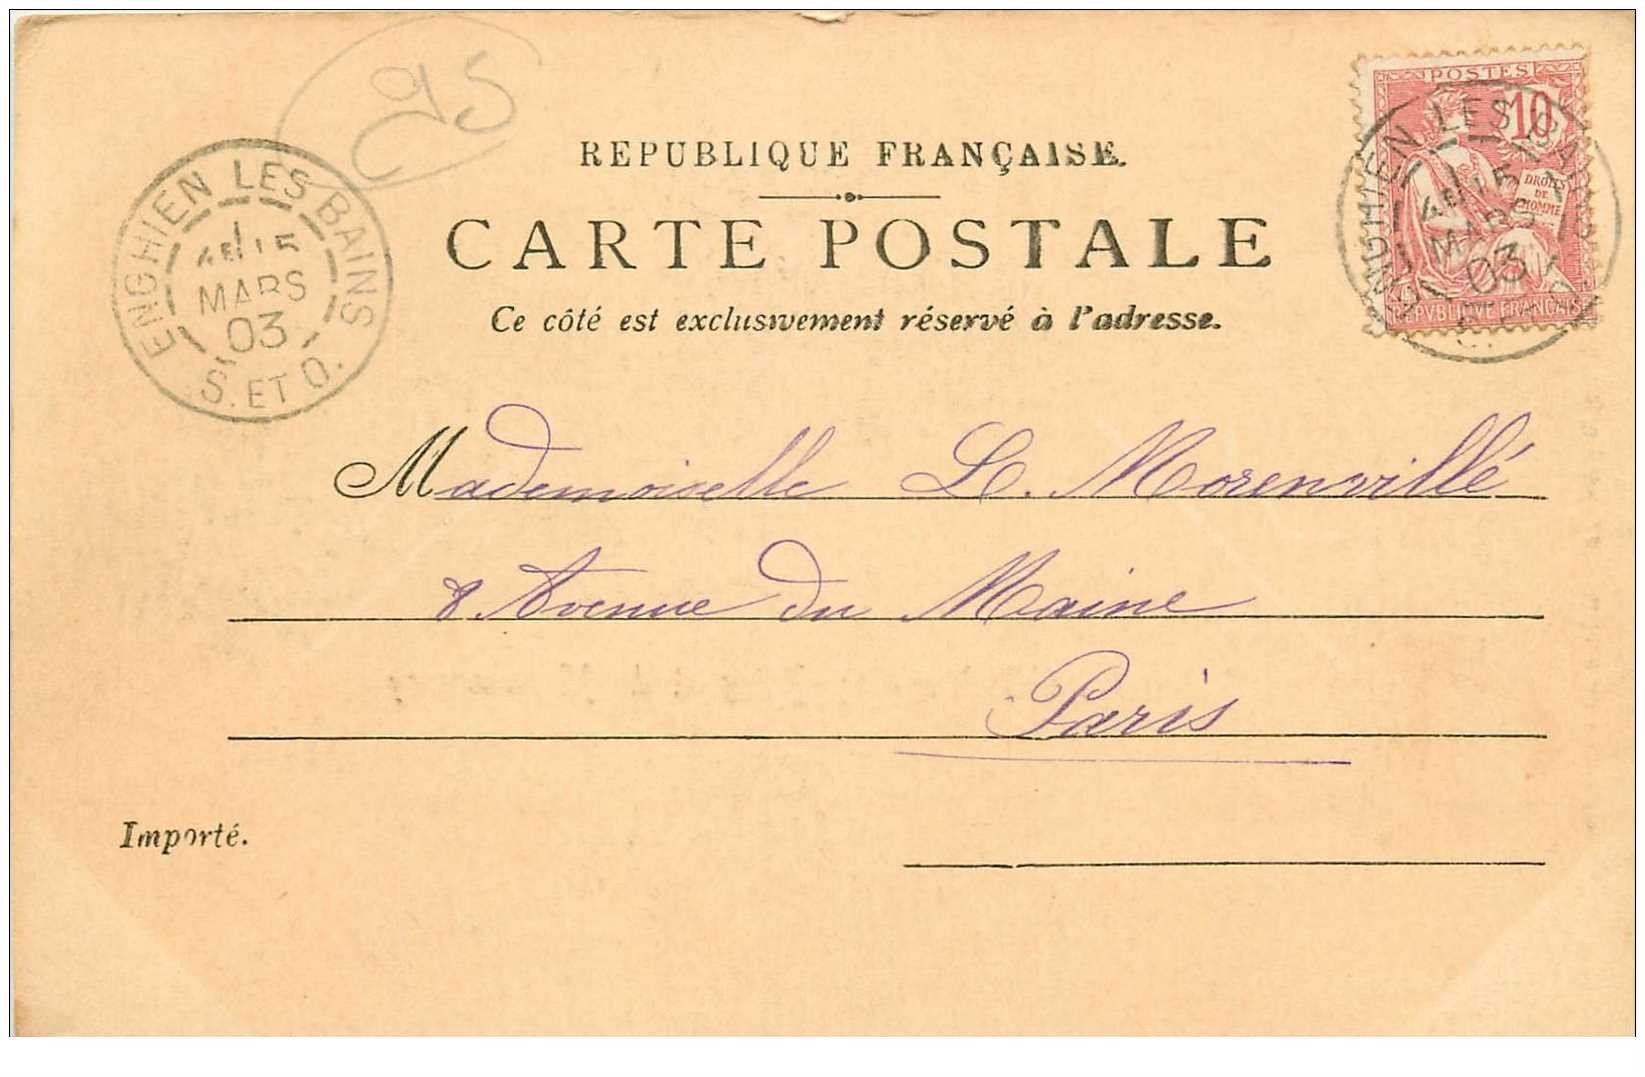 95
REPUBLIQUE FRANÇAISE.
CARTE POSTALE
Ce côté est exclusivement réservé à l'adresse.
ENGHIEN LES BAINS
4E 15
MARS
03
S. ET O.
POSTES
10
DROITS
DE
HOMME
REPVBLIQVE FRANÇAISE
ENGHIEN LES BAINS
4E 15
MARS
03
Mademoiselle L. Morenvillé
8 Avenue du Maine
Paris
Importé.